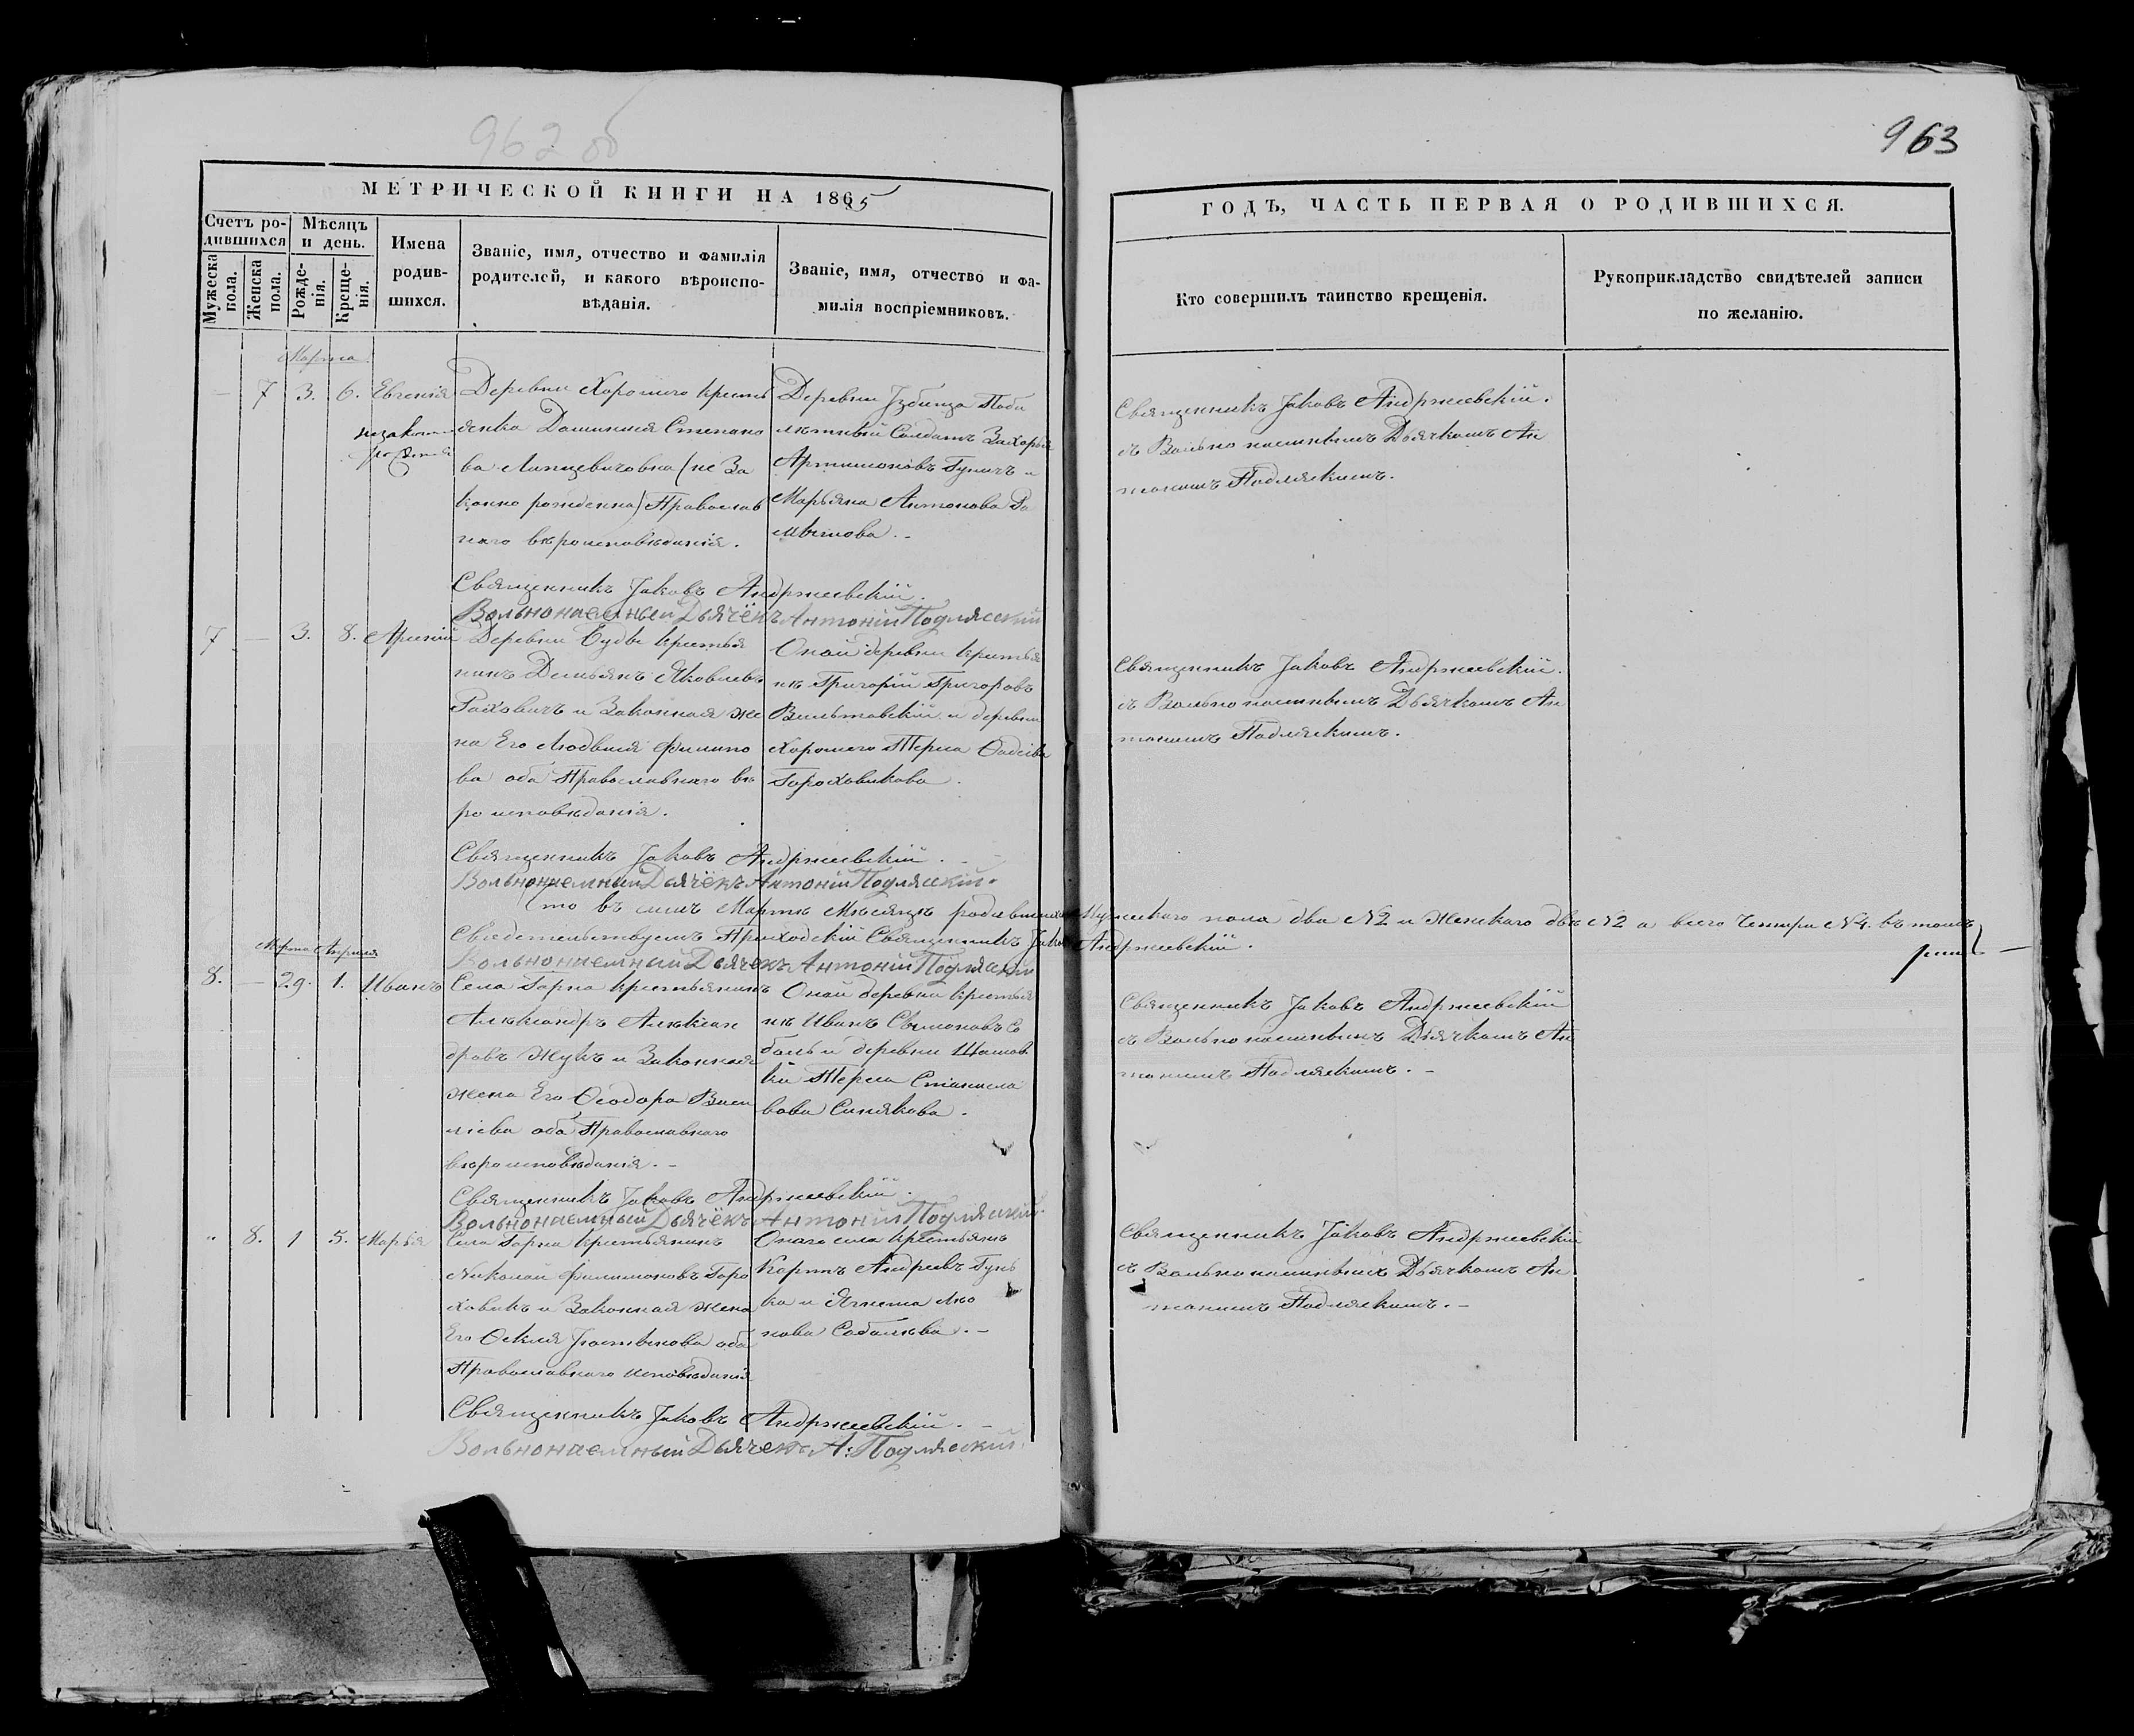 962 об
963
МЕТРИЧЕСКОЙ КНИГИ НА 1865
ГОДЪ, ЧАСТЬ ПЕРВАЯ О РОДИВШИХСЯ.
Счетъ ро-
дившихся
Мужеска
пола.
Женска
пола.
Мѣсяцъ
и день.
Рожде-
нія.
Креще-
нія.
Имена
родив-
шихся.
Званіе, имя, отчество и фамилія
родителей, и какого вѣроиспо-
вѣданія.
Званіе, имя, отчество и фа-
милія воспріемниковъ.
Кто совершилъ таинство крещенія.
Рукоприкладство свидѣтелей записи
по желанію.
Марта
7 3. 6. Евгенія
Деревни Хорошого кресть
янка Домникія Степано
ва (не за
конно рожденна) Православ
наго вѣроисповѣданія.
Деревни
Солдатъ Захарья
и
Марьяна Антонова
Священникъ Іаковъ Андржеевскій.
съ Вольнонаемнымъ Дьячкомъ Ан
тоніемъ Подляскимъ.
Священникъ Іаковъ Андржеевскій.
Вольнонаемный Дьячёкъ Антоній Подляскій
7 — 3. 8. Арсеній
Деревни крестья
нинъ Демьянъ Яковлевъ
и Законная же
на Его Людвися Филипо
ва оба Православнаго вѣ
роисповѣданія.
Оной деревни крестья
нъ Григорій Григоровъ
и деревни
Хорошого Тереса
Гороховикова.
Священникъ Іаковъ Андржеевскій.
съ Вольнонаемнымъ Дьячкомъ Ан
тоніемъ Подляскимъ.
Священникъ Іаковъ Андржеевскій.
Вольнонаемный Дьячёкъ Антоній Подляскій.
Что въ семъ Мартѣ Мѣсяцѣ родившихся Мужескаго пола два №2 и Женскаго двѣ №2 а всего Четыри №4. въ томъ
Свѣдетельствуемъ Приходскій Священникъ Іаковъ Андржеевскій.
Вольнонаемный Дьячекъ Антоній Подляскій
Марта Апреля
8. — 29. 1. Иванъ
Села Горна крестьянинъ
Александръ Алексан
дровъ Жукъ и Законная
жена Его Ѳеодора Васи
ліева оба Православнаго
вѣроисповѣданія. –
Оной деревни крестья
нъ Иванъ Сымоновъ Со
боль и деревни
Тереса Станисла
вова Синякова.
Священникъ Іаковъ Андржеевскій
съ Вольнонаемнымъ Дьячкомъ Ан
тоніемъ Подляскимъ. –
Священникъ Іаковъ Андржеевскій.
Вольнонаемный Дьячёкъ Антоній Подляскій.
" 8. 1 5. Марія
Села Горна крестьянинъ
Николай Филимоновъ Горо
ховикъ и Законная жена
Его Устинова оба
Православнаго исповѣданія
Оного села крестьянъ
Карпъ Андреевъ Гунь
ка и Ягнета
нова Соболева. –
Священникъ Іаковъ Андржеевскій
съ Вольнонаемнымъ Дьячкомъ Ан
тоніемъ Подляскимъ. –
Священникъ Іаковъ Андржеевскій. –
Вольнонаемный Дьячекъ А: Подляскій.